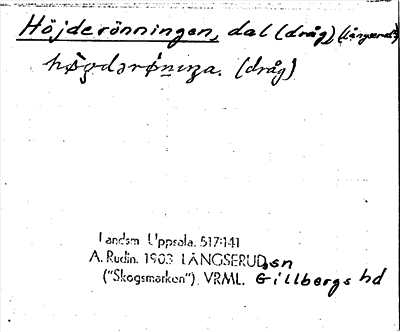 Höjderönningen, dal (dråg) (Långserud)
högdərønıŋa. (dråg)
Landsm. Uppsala. 517:141
A. Rudin. 1903. LÅNGSERUD sn
("Skogsmarken"). VRML. Gillbergs hd